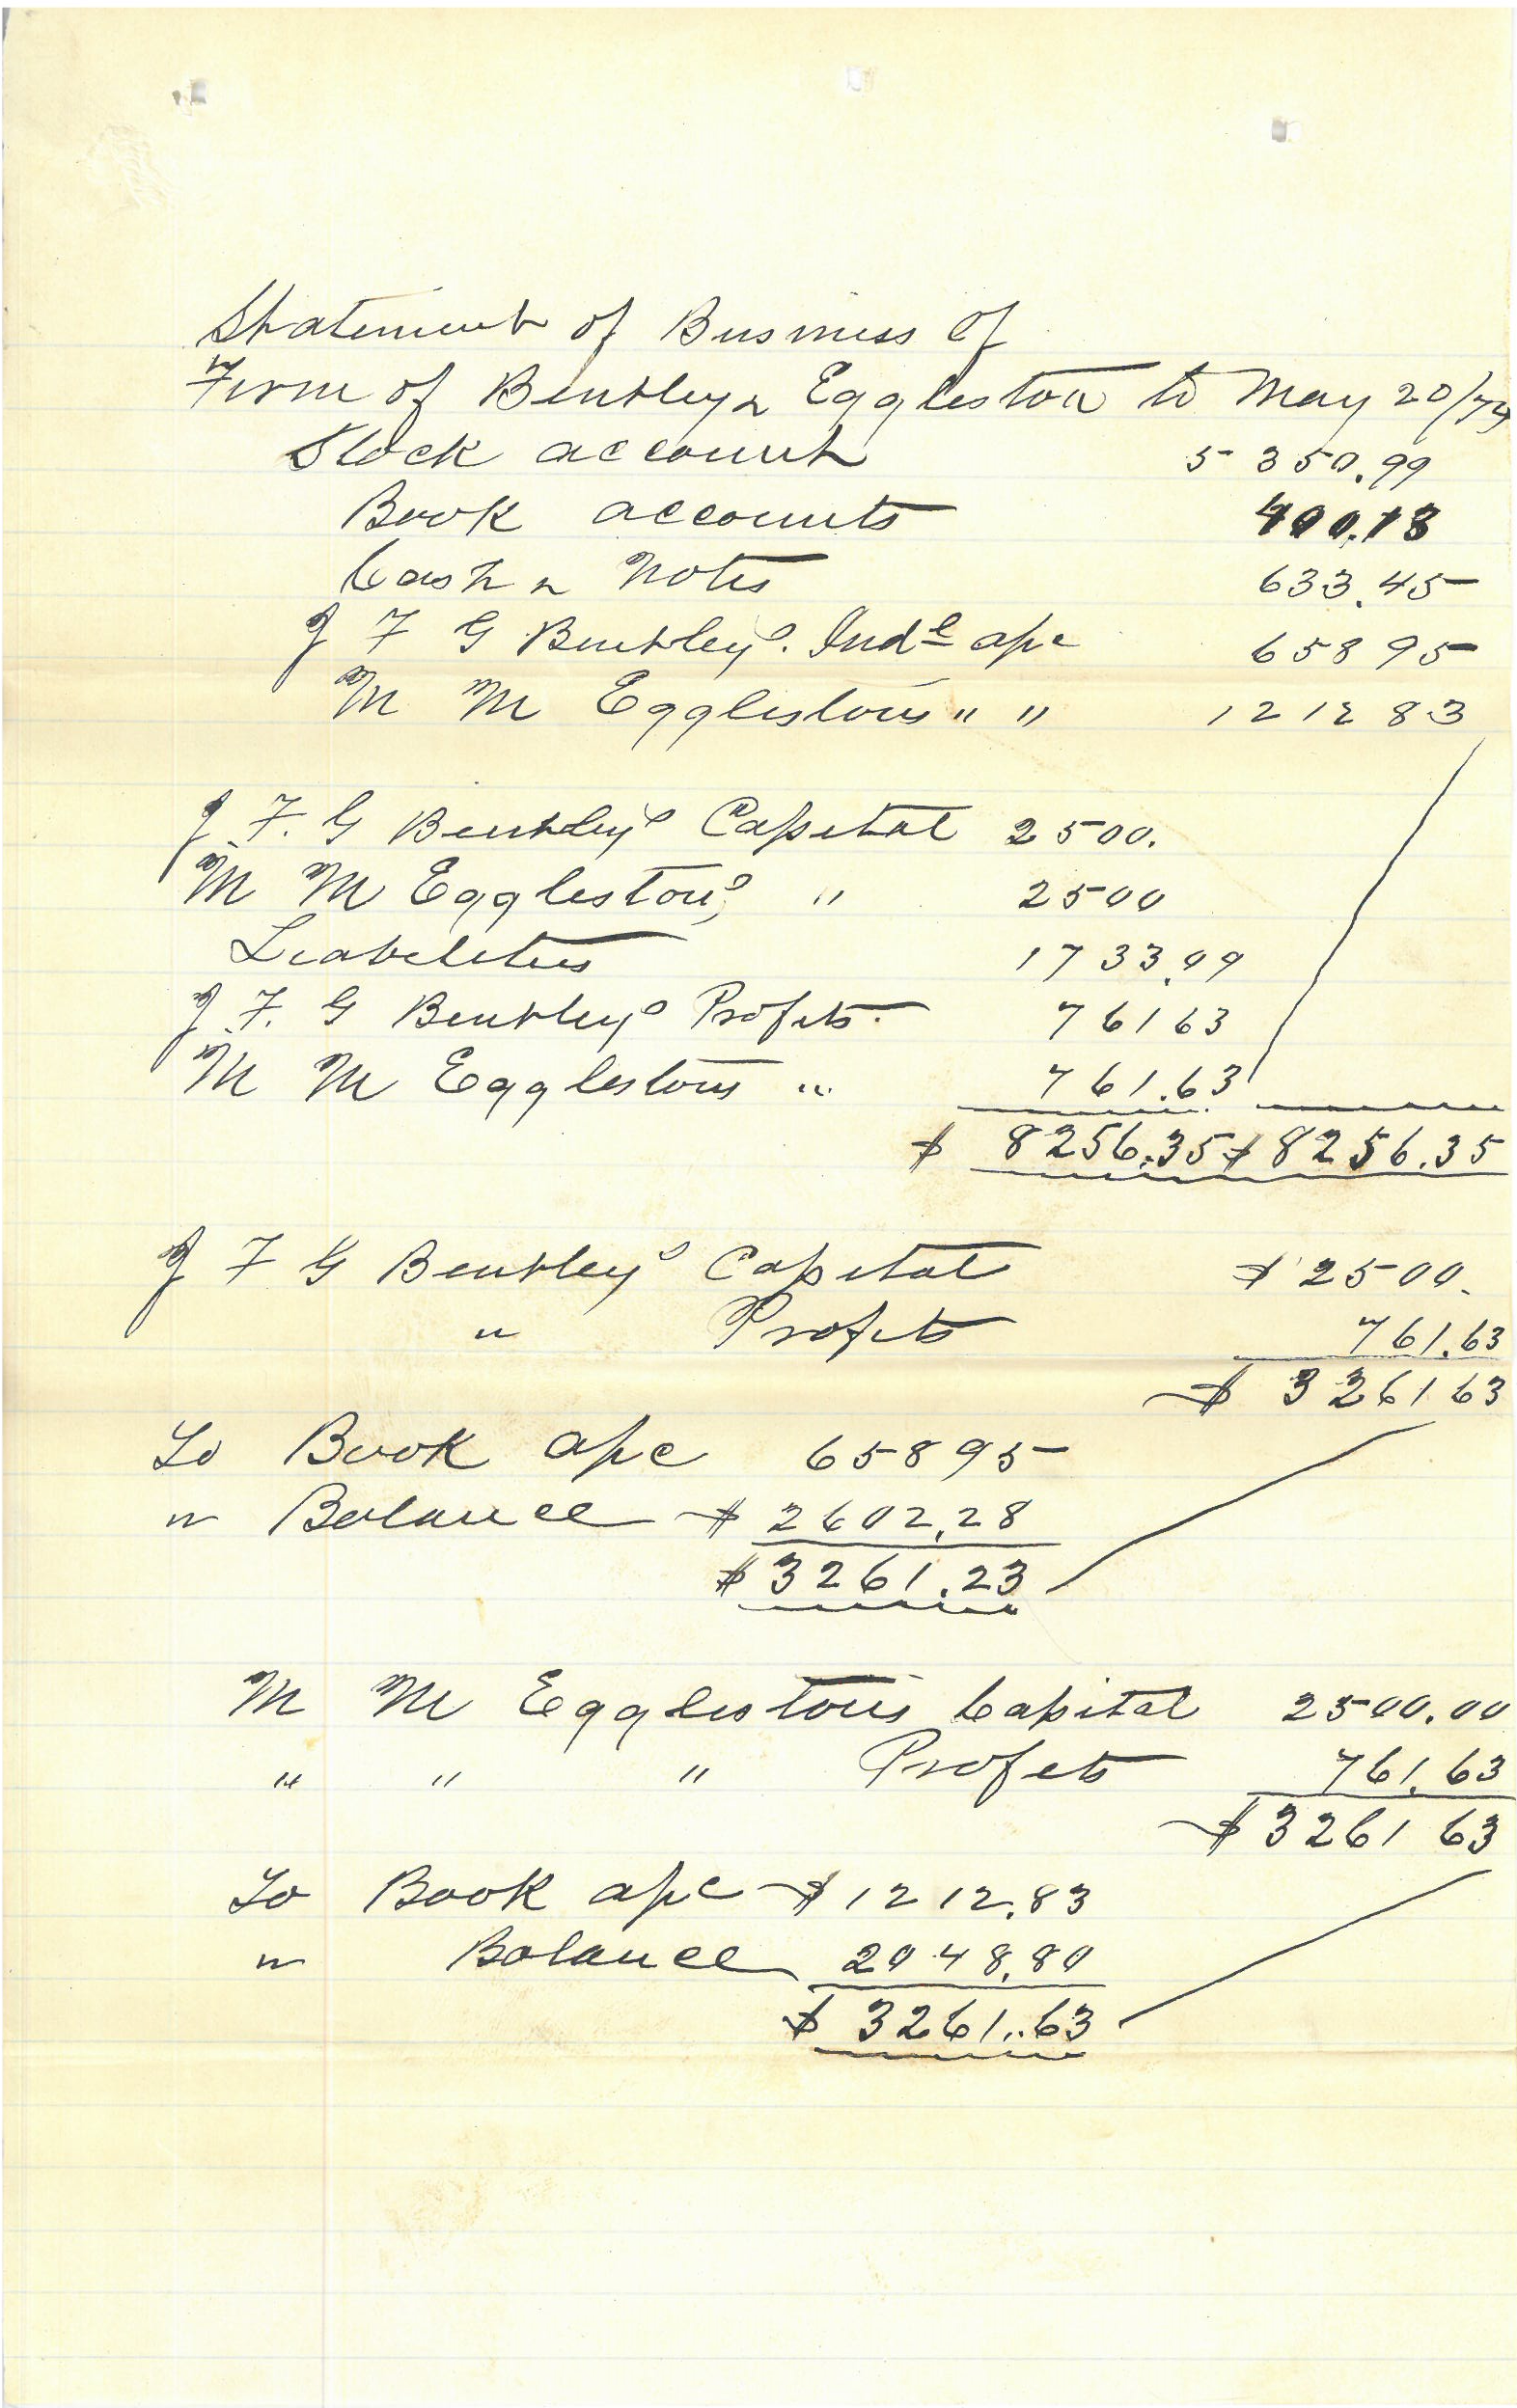 Statement of Business of
Firm of Bentley & Eggleston to May 20/74
Stock account 5350.99
Book accounts 400.13
Cash & Notes 633.45
J F G Bentleys. Indl a/c 658 95
M M Egglestons " " 1212 83
J. F. G Bentleys Capital 2500.
M M Egglestons " 2500
Liabilities 1733.09
J. F. G Bentleys Profits. 761 63
M M Egglestons " 761.63
$ 8256.35 $ 8256.35
J F G Bentleys Capital $ 2500.
" Profits 761.63
$ 3261 63
To Book a/c 658 95
" Balance $ 2602.28
$ 3261.23
M M Egglestons Capital 2500.00
" " " Profits 761.63
$ 3261 63
To Book a/c $ 1212.83
" Balance 2048.80
$ 3261.63